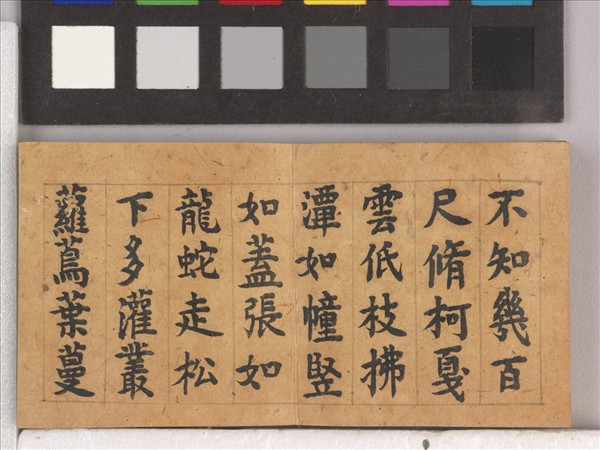 不知幾百
尺脩柯戛
雲低枝拂
潭如幢竪
如蓋張如
龍蛇走松
下多灌叢
蘿蔦葉蔓